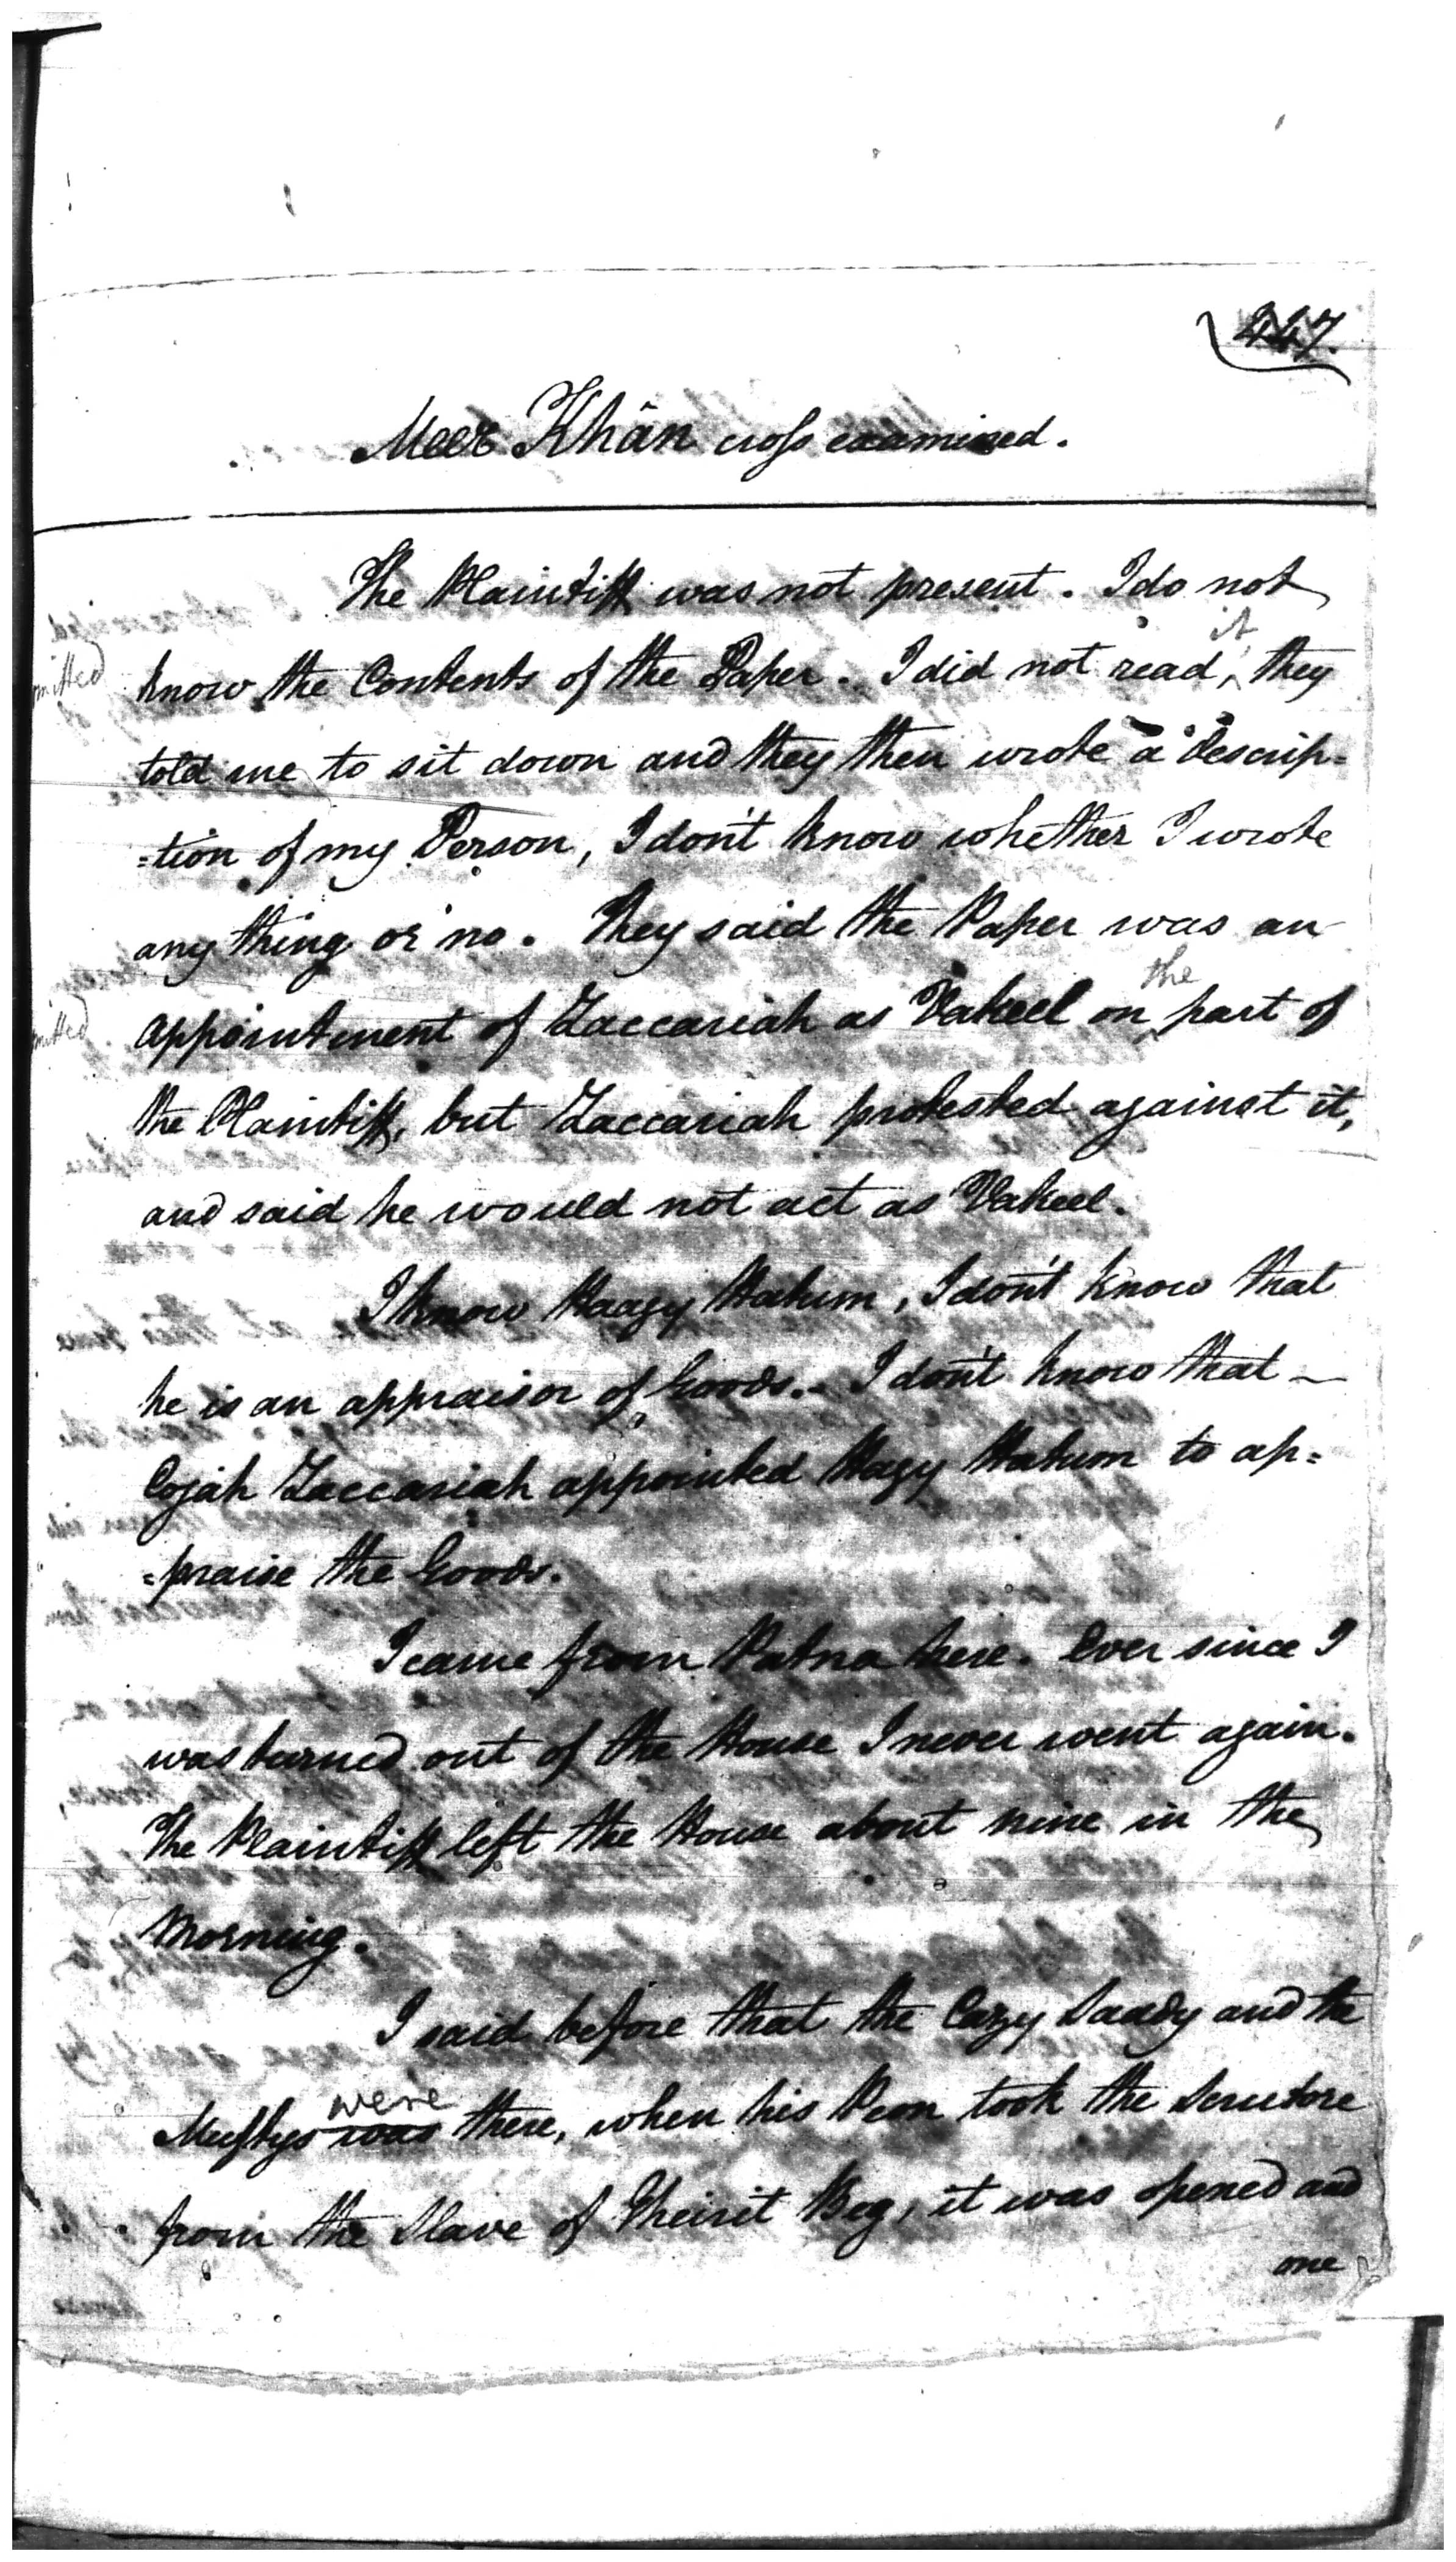 447.
Meer Khân cross examined.
The Plaintiff was not present. I do not
it
omitted know the Contents of the Paper. I did not read ^, they
told me to sit down and they then wrote a descrip=
=tion of my Person, I don't know whether I wrote
any thing or no. They said the Paper was an
the
omitted appointment of Zaccariah as Vakeel on ^ part of
the Plaintiff, but Zaccariah protested against it,
and said he would not act as Vakeel.
I know Haagy Hakim, I don't know that
he is an appraisor of Goods. I don't know that
Cojah Zaccariah appointed Hagy Hakim to ap=
=praise the Goods.
I came from Patna here. Ever since I
was turned out of the House I never went again.
The Plaintiff left the House about nine in the
Morning.
I said before that the Cazy Saady and the
were
Muftys was there, when his Peon took the Scrutore
from the Slave of Kheirit Beg, it was opened and
one